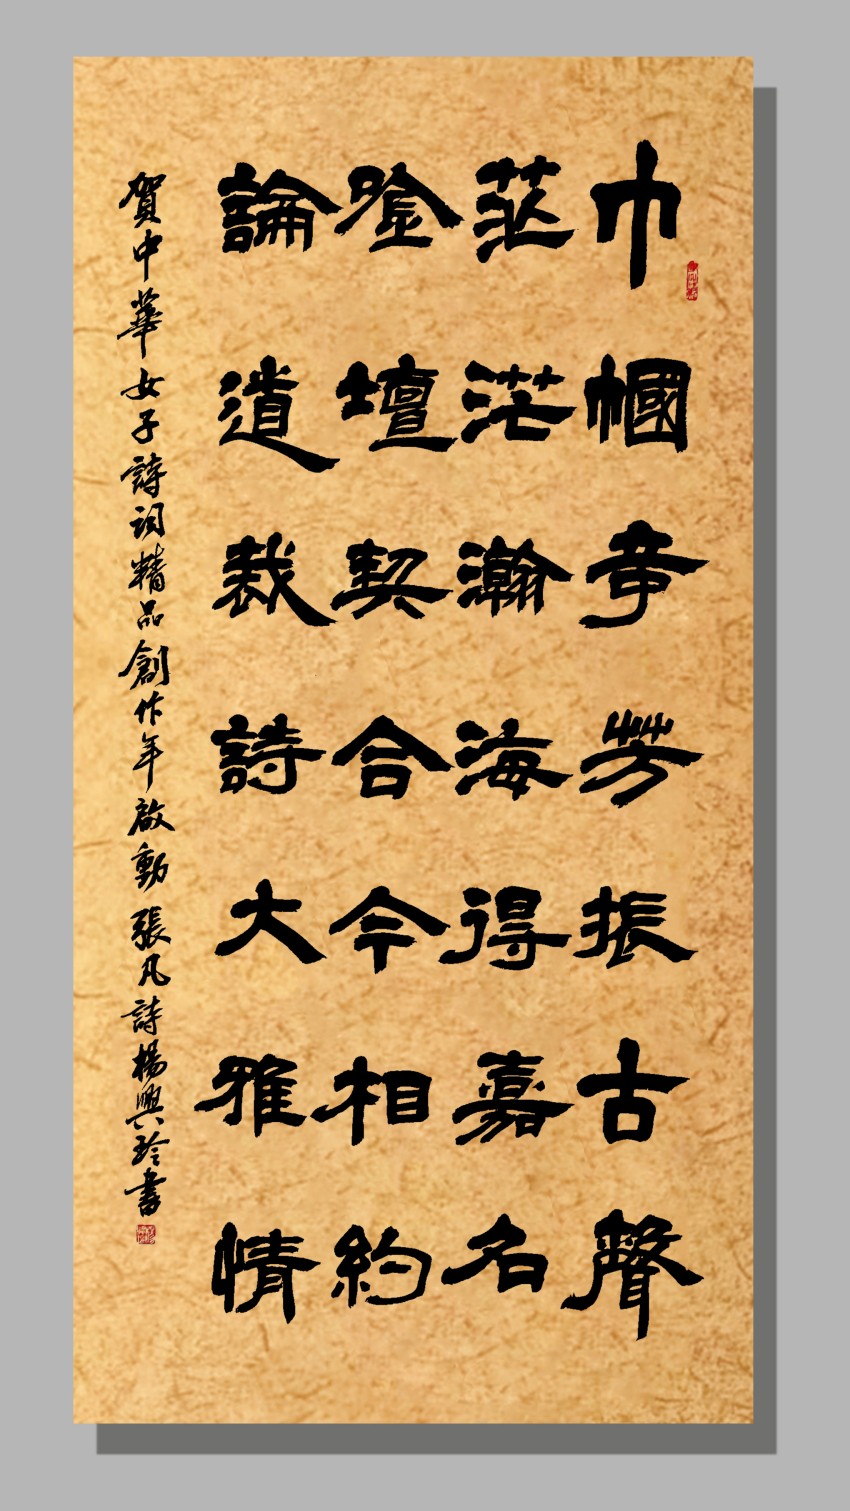 巾幗芳振古聲
茫茫瀚海得嘉名
唫壇契合今相約
論道裁詩大雅情
賀中華女子詩詞精品創作年啟動張凡詩楊興玲書